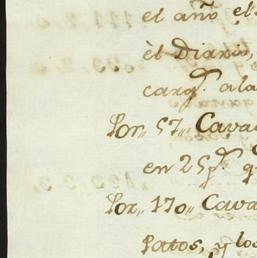 el año el
el Diario,
carg.^s a la
Por,, 57,, Cava
en 25 p.^s q
Por,, 170,, Cava
patos, y los